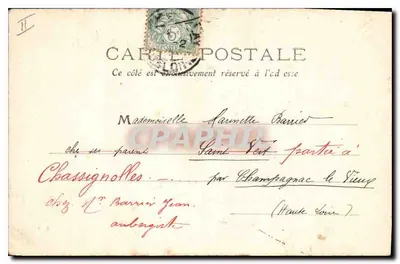 II
CARTE POSTALE
Ce côté est exclusivement réservé à l'adresse
Mademoiselle Marinette Barrier
chez ses parents Saint Vert partie à
Chassignolles par Champagnac le Vieux
chez Mr Barrier Jean (Haute Loire)
aubergiste
CPARAMA